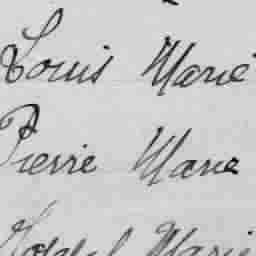 Louis Marie
Pierre Marie
Marie